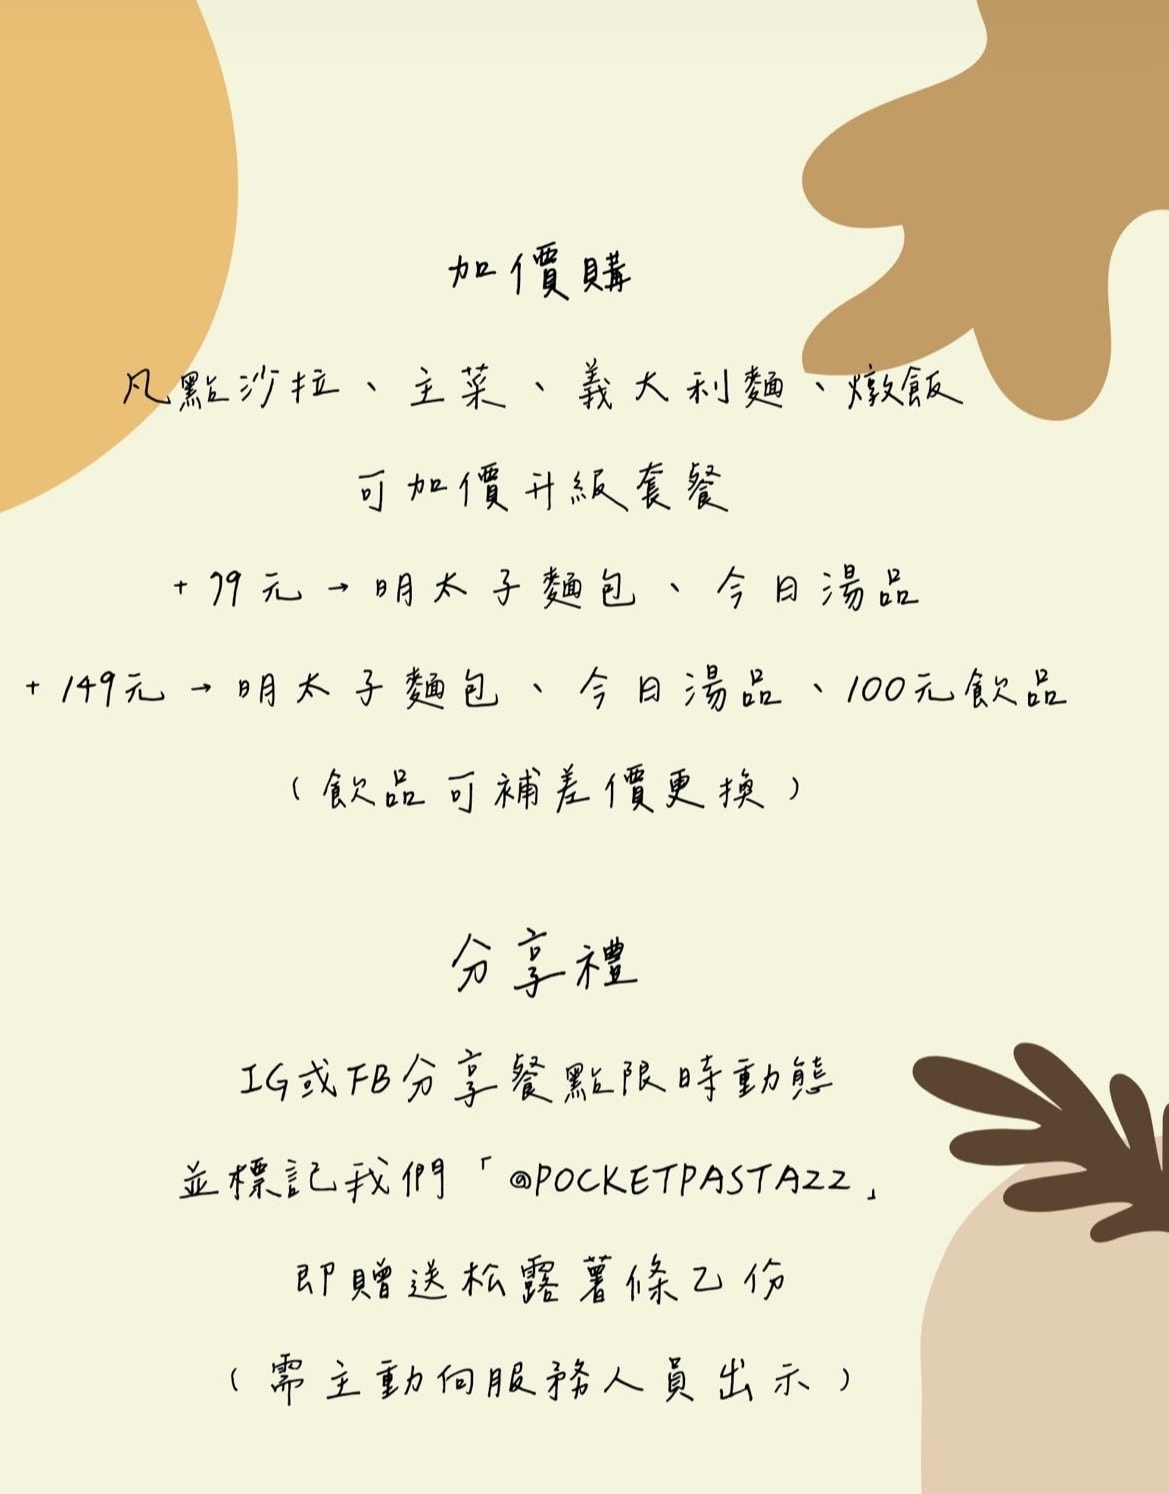 加價購
凡點沙拉、主菜、義大利麵、燉飯
可加價升級套餐
+79元→明太子麵包、今日湯品
+149元→明太子麵包、今日湯品、100元飲品
(飲品可補差價更換)
分享禮
IG或FB分享餐點限時動態
並標記我們「@POCKETPASTA22」
即贈送松露薯條乙份
(需主動向服務人員出示)